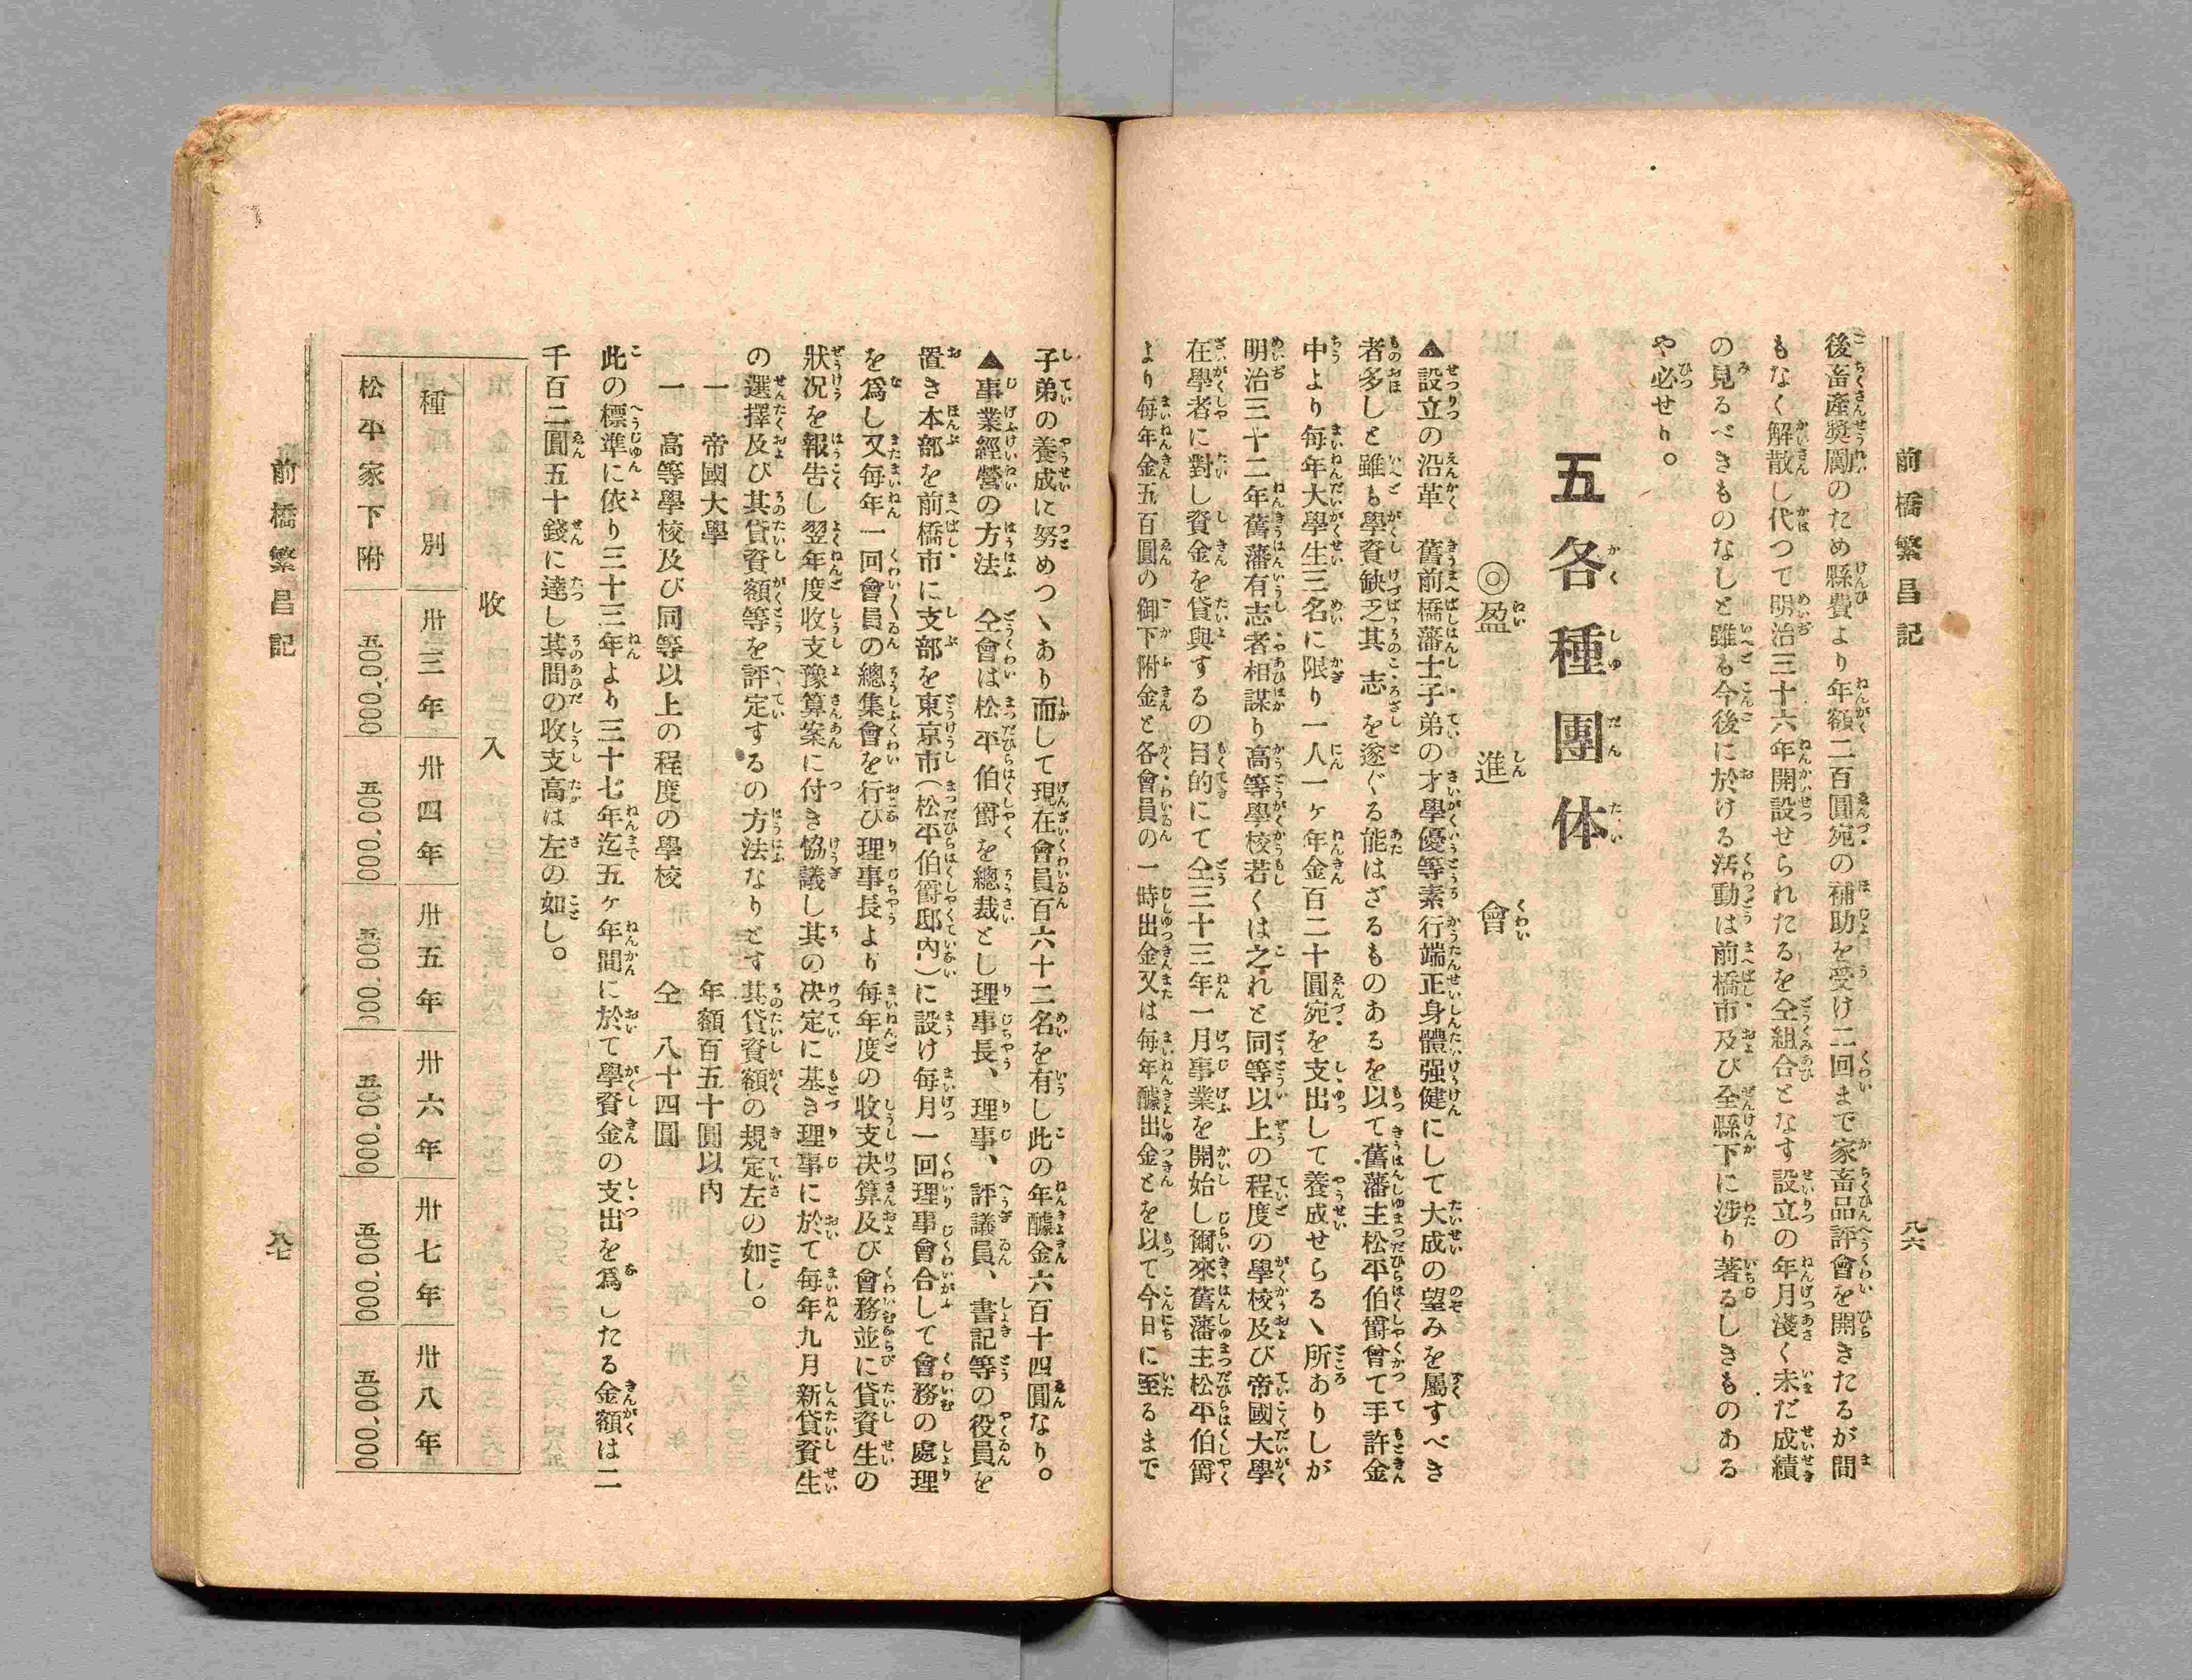 前橋繁昌記
八六
後畜産奬勵のため縣費より年額二百圓宛の補助を受け二回まで家畜品評會を開きたるが間
もなく解散し代つて明治三十六年開設せられたるを仝組合となす設立の年月淺く未だ成績
の見るべきものなしと雖も今後に於ける活動は前橋市及び全縣下に涉り著るしきものある
や必せり。
五各種團体
◎盈進會
▲設立の沿革　舊前橋藩士子弟の才學優等素行端正身體强健にして大成の望みを屬すべき
者多しと雖も學資缺乏其志を遂ぐる能はざるものあるを以て舊藩主松平伯爵曾て手許金
中より每年大學生三名に限り一人一ヶ年金百二十圓宛を支出して養成せらるゝ所ありしが
明治三十二年舊藩有志者相謀り高等學校若くは之れと同等以上の程度の學校及び帝國大學
在學者に對し資金を貸與するの目的にて仝三十三年一月事業を開始し爾來舊藩主松平伯爵
より每年金五百圓の御下附金と各會員の一時出金又は每年醵出金とを以て今日に至るまで
子弟の養成に努めつゝあり而して現在會員百六十二名を有し此の年醵金六百十四圓なり。
▲事業經營の方法　仝會は松平伯爵を總裁とし理事長、理事、評議員、書記等の役員を
置き本部を前橋市に支部を東京市(松平伯爵邸內)に設け每月一回理事會合して會務の處理
を爲し又每年一回會員の總集會を行ひ理事長より每年度の收支决算及び會務並に貸資生の
狀況を報告し翌年度收支豫算案に付き協議し其の决定に基き理事に於て每年九月新貸資生
の選擇及び其貸資額等を評定するの方法なりとす其貸資額の規定左の如し。
一　帝國大學　年額百五十圓以內
一　高等學校及び同等以上の程度の學校　仝　八十四圓
此の標準に依り三十三年より三十七年迄五ヶ年間に於て學資金の支出を爲したる金額は二
千百二圓五十錢に達し其間の收支高は左の如し。
收入
種別　卅三年　卅四年　卅五年　卅六年　卅七年　卅八年
松平家下附　五〇〇,〇〇〇　五〇〇,〇〇〇　五〇〇,〇〇〇　五〇〇,〇〇〇　五〇〇,〇〇〇　五〇〇,〇〇〇
前橋繁昌記
八七